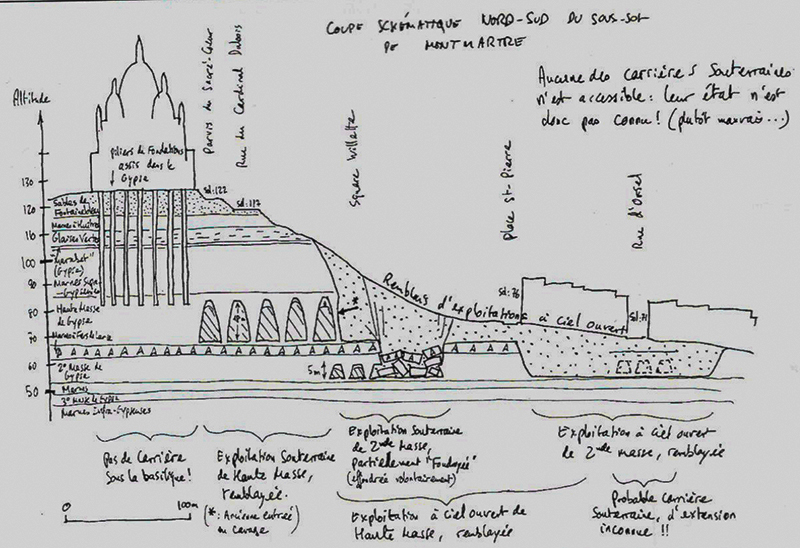 COUPE SCHÉMATIQUE NORD-SUD DU SOUS-SOL
DE MONTMARTRE
Aucune des carrières souterraines
n'est accessible : leur état n'est
donc pas connu ! (plutôt mauvais...)
Altitude
130
120
110
100
90
80
70
60
50
piliers de fondations
assis dans le
Gypse
Parvis du Sacré-Cœur
Rue du Cardinal Dubois
Square Willette
Place St-Pierre
Rue d'Orsel
Sol:122
Sol:117
Sol:76
Sol:71
Sables de
Fontainebleau
Marnes à Huîtres
Glaises Vertes
(Gypse)
Marnes Supra-
Gypseuses
Haute Masse
de Gypse
2º Masse de
Gypse
Marnes
3º Masse de Gypse
Marnes Infra-Gypseuses
*
5m
Remblais d'exploitations à Ciel ouvert
Pas de Carrière
sous la basilique !
Exploitation Souterraine
de Haute Masse,
remblayée.
(* : Ancienne entrée
en cavage)
Exploitation Souterraine
de 2nde Masse,
partiellement "Foudroyée"
(effondrée volontairement)
Exploitation à Ciel ouvert de
Haute Masse, remblayée
Exploitation à Ciel ouvert
de 2nde masse, remblayée
Probable Carrière
Souterraine, d'extension
inconnue !!
0
100m